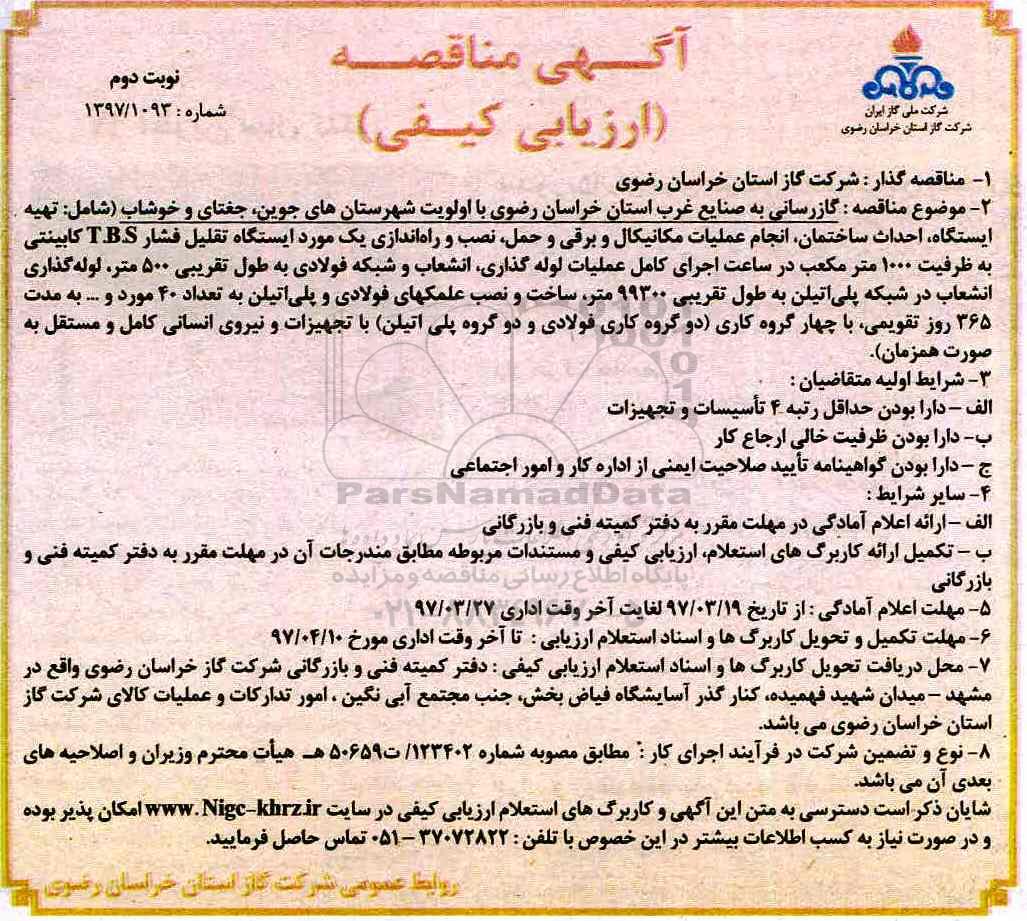 آگهی مناقصه
(ارزیابی کیفی)
نوبت دوم
شماره : ۱۳۹۷/۱۰۹۳
شرکت ملی گاز ایران
شرکت گاز استان خراسان رضوی
۱- مناقصه گذار : شرکت گاز استان خراسان رضوی
۲- موضوع مناقصه : گازرسانی به صنایع غرب استان خراسان رضوی با اولویت شهرستان های جوین، جغتای و خوشاب (شامل: تهیه
ایستگاه، احداث ساختمان، انجام عملیات مکانیکال و برقی و حمل، نصب و راه‌اندازی یک مورد ایستگاه تقلیل فشار T.B.S کابینتی
به ظرفیت ۱۰۰۰ متر مکعب در ساعت اجرای کامل عملیات لوله گذاری، انشعاب و شبکه فولادی به طول تقریبی ۵۰۰ متر، لوله‌گذاری
انشعاب در شبکه پلی‌اتیلن به طول تقریبی ۹۹۳۰۰ متر، ساخت و نصب علمکهای فولادی و پلی‌اتیلن به تعداد ۴۰ مورد و ... به مدت
۳۶۵ روز تقویمی، با چهار گروه کاری (دو گروه کاری فولادی و دو گروه پلی اتیلن) با تجهیزات و نیروی انسانی کامل و مستقل به
صورت همزمان).
۳- شرایط اولیه متقاضیان :
الف – دارا بودن حداقل رتبه ۴ تأسیسات و تجهیزات
ب- دارا بودن ظرفیت خالی ارجاع کار
ج – دارا بودن گواهینامه تأیید صلاحیت ایمنی از اداره کار و امور اجتماعی
ParsNamadData
۴- سایر شرایط :
الف – ارائه اعلام آمادگی در مهلت مقرر به دفتر کمیته فنی و بازرگانی
ب – تکمیل ارائه کاربرگ های استعلام، ارزیابی کیفی و مستندات مربوطه مطابق مندرجات آن در مهلت مقرر به دفتر کمیته فنی و
بازرگانی
پایگاه اطلاع رسانی مناقصه و مزایده
۵- مهلت اعلام آمادگی : از تاریخ ۹۷/۰۳/۱۹ لغایت آخر وقت اداری ۹۷/۰۳/۲۷
۶- مهلت تکمیل و تحویل کاربرگ ها و اسناد استعلام ارزیابی : تا آخر وقت اداری مورخ ۹۷/۰۴/۱۰
۷- محل دریافت تحویل کاربرگ ها و اسناد استعلام ارزیابی کیفی : دفتر کمیته فنی و بازرگانی شرکت گاز خراسان رضوی واقع در
مشهد – میدان شهید فهمیده، کنار گذر آسایشگاه فیاض بخش، جنب مجتمع آبی نگین ، امور تدارکات و عملیات کالای شرکت گاز
استان خراسان رضوی می باشد.
۸- نوع و تضمین شرکت در فرآیند اجرای کار : مطابق مصوبه شماره ۱۲۳۴۰۲/ ت۵۰۶۵۹ هـ هیأت محترم وزیران و اصلاحیه های
بعدی آن می باشد.
شایان ذکر است دسترسی به متن این آگهی و کاربرگ های استعلام ارزیابی کیفی در سایت www.Nigc-khrz.ir امکان پذیر بوده
و در صورت نیاز به کسب اطلاعات بیشتر در این خصوص با تلفن : ۳۷۰۷۲۸۲۲ – ۰۵۱ تماس حاصل فرمایید.
روابط عمومی شرکت گاز استان خراسان رضوی